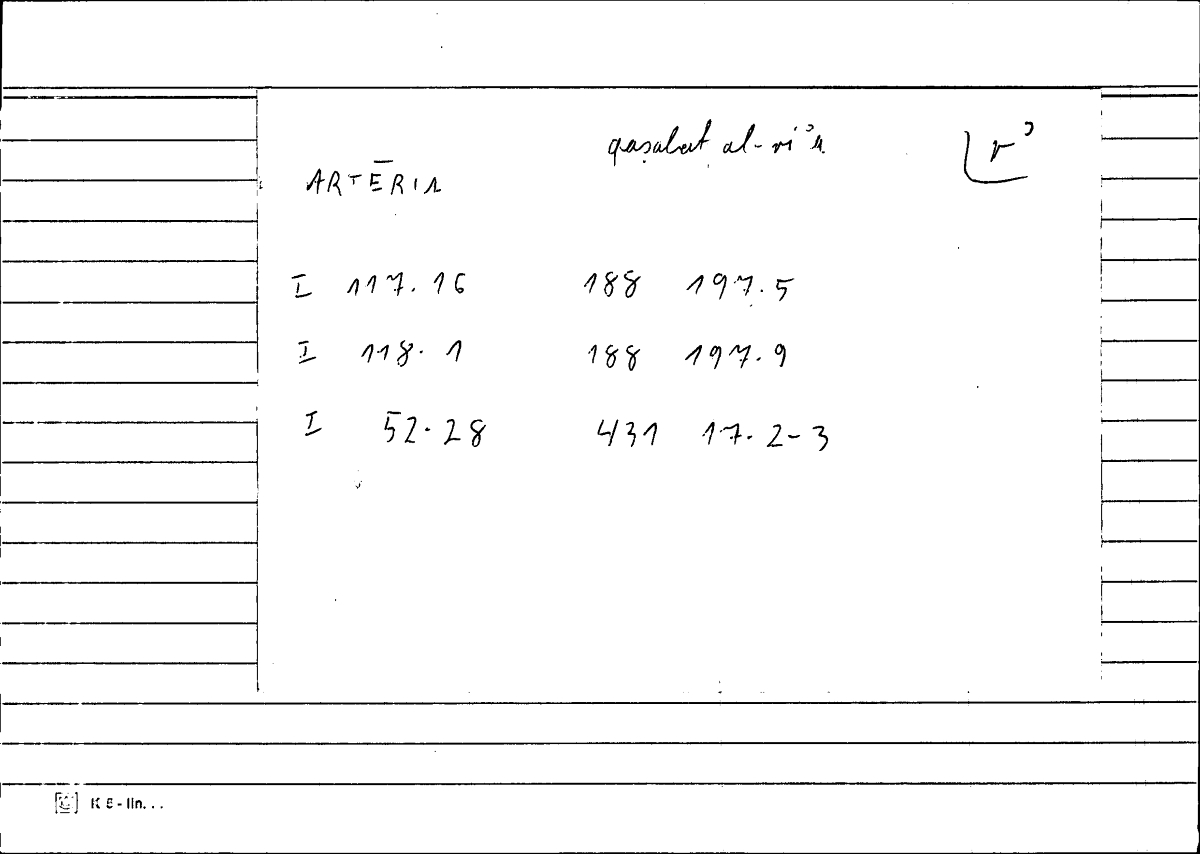 qaṣabat al-ri'a
r'
ARTĒRIA
I 117.16 188 197.5
I 118.1 188 197.9
I 52.28 431 17.2-3
K 5 - lin...